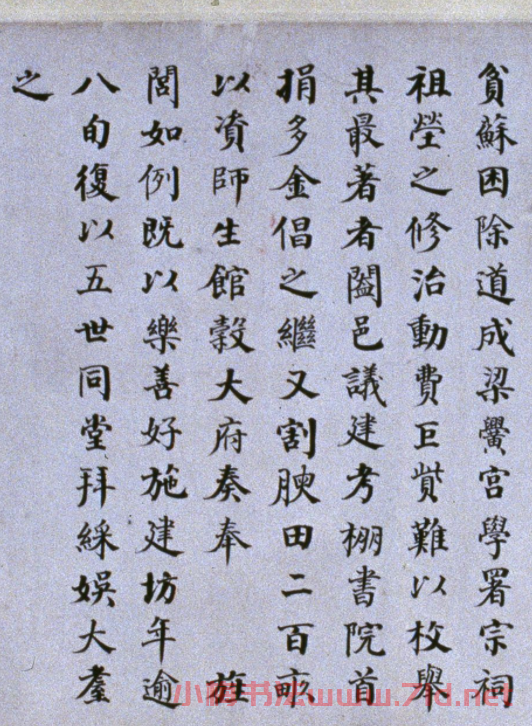 貧蘇困除道成梁黌宮學署宗祠
祖塋之修治動費巨貲難以枚舉
其最著者闔邑議建考棚書院首
捐多金倡之繼又割腴田二百畝
以資師生館穀大府奏奉 旌
閭如例既以樂善好施建坊年逾
八旬復以五世同堂拜綵娛大耋
之
www.7jd.net